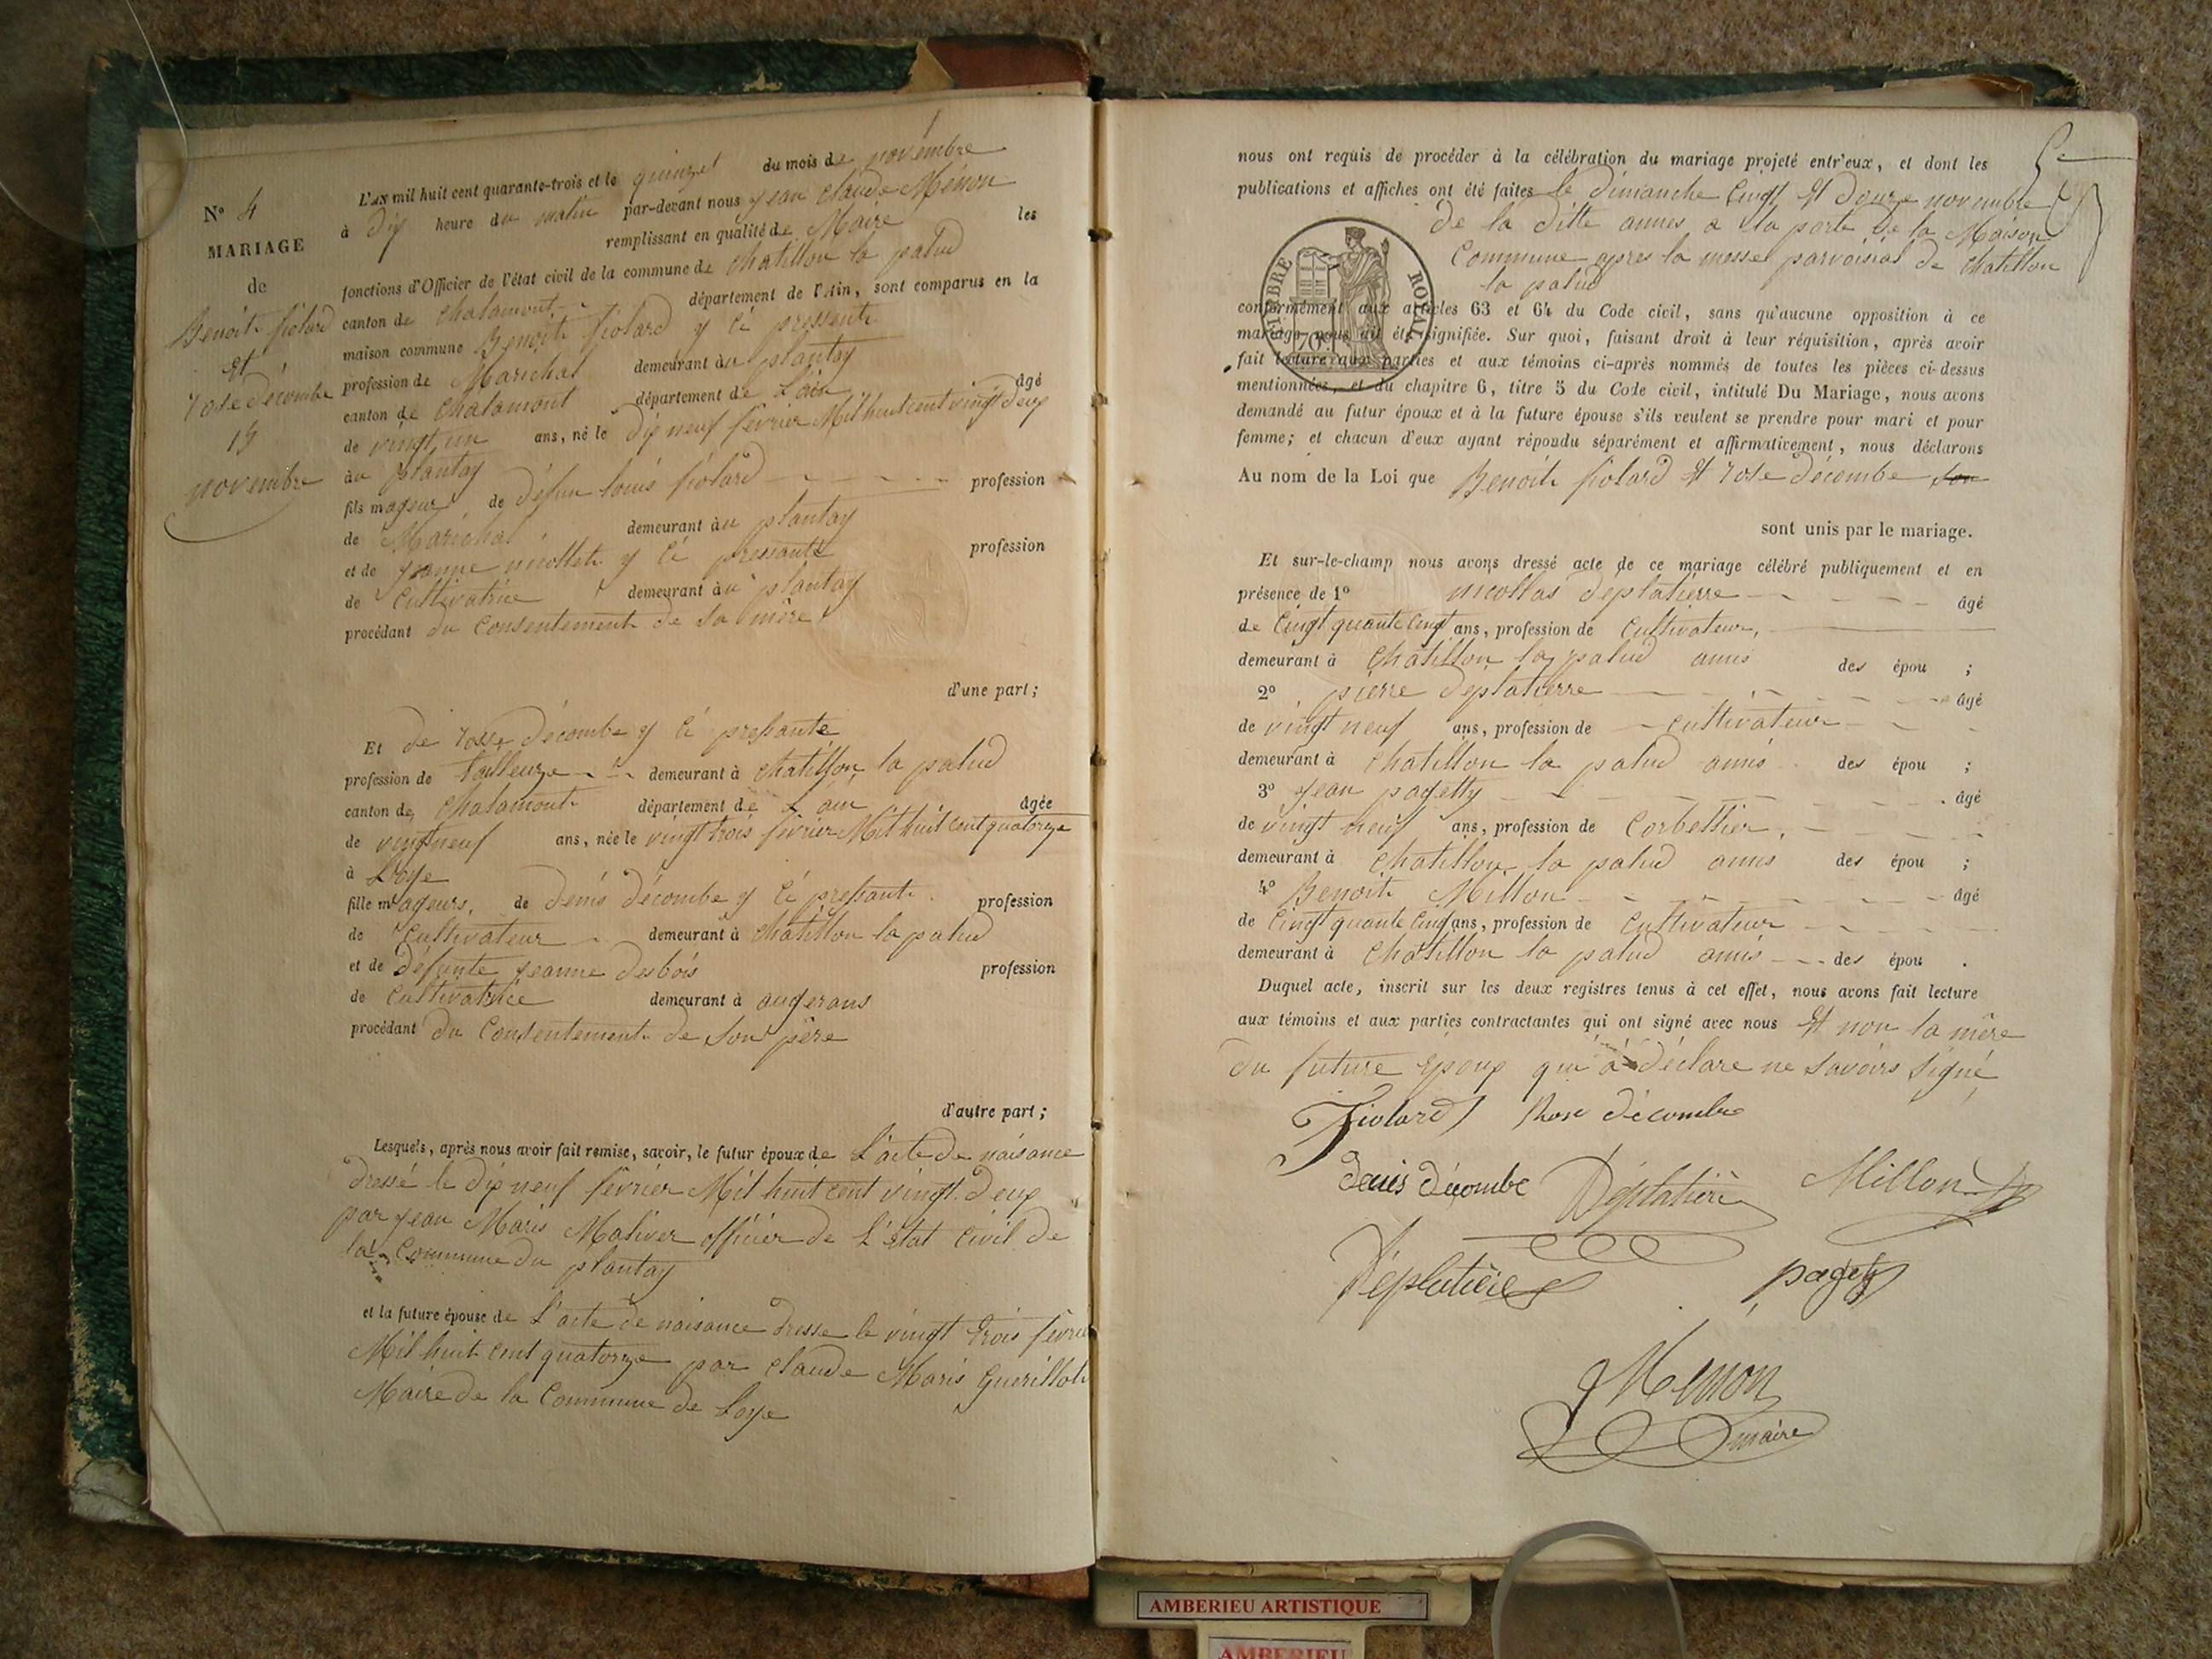 N° 4
MARIAGE
de
Benoit fiolard
et
rose décombe
15
novembre
L'AN mil huit cent quarante-trois et le quinze du mois de novembre
à dix heure du matin par-devant nous jean claude Menon
remplissant en qualité de Maire les
fonctions d'Officier de l'état civil de la commune de chatillon la palud
canton de chalamont département de l'Ain, sont comparus en la
maison commune Benoit fiolard y ci pressente
profession de Marichal demeurant au plantay
canton de chalamont département de L'ain âgé
de vingt un ans, né le dix neuf février Mil huit cent vingt deux
au plantay
fils mageur de défun louis fiolard profession
de Marichal demeurant au plantay
et de jeanne nicollet y ci pressante profession
de Cultivatrice demeurant au plantay
procédant du Consentement de sa mère
d'une part;
Et de rosse décombe y ci pressante
profession de tailleuze demeurant à chatillon la palud
canton de chalamont département de L'ain âgée
de vingt neuf ans, née le vingt trois février Mil huit cent quatorze
à Loye
fille mageurs, de denis décombe y ci pressant profession
de Cultivateur demeurant à chatillon la palud
et de défunte jeanne desbois profession
de Cultivatrice demeurant à augerans
procédant du Consentement de son père
d'autre part;
Lesquels, après nous avoir fait remise, savoir, le futur époux de L'acte de naisance
dressé le dix neuf février Mil huit cent vingt deux
par jean Maris Maliver officier de L'état civil de
la Commune du plantay
et la future épouse de L'acte de naisance dresse le vingt trois février
Mil huit cent quatorze par claude Maris Guerillot
Maire de la Commune de Loye
nous ont requis de procéder à la célébration du mariage projeté entr'eux, et dont les
publications et affiches ont été faites le dimanche Cinqt et douze novembre
de la ditte annes a la porte de la Maison
Commune apres la messe parroisial de chatillon
la palud
TIMBRE ROYAL
70
conformément aux articles 63 et 64 du Code civil, sans qu'aucune opposition à ce
mariage nous ait été signifiée. Sur quoi, faisant droit à leur réquisition, après avoir
fait lecture aux parties et aux témoins ci-après nommés de toutes les pièces ci-dessus
mentionnées, et du chapitre 6, titre 5 du Code civil, intitulé Du Mariage, nous avons
demandé au futur époux et à la future épouse s'ils veulent se prendre pour mari et pour
femme; et chacun d'eux ayant répondu séparément et affirmativement, nous déclarons
Au nom de la Loi que Benoit fiolard et rose décombe
sont unis par le mariage.
Et sur-le-champ nous avons dressé acte de ce mariage célébré publiquement et en
présence de 1° nicollas déplatierre âgé
de Cinqt quante Cinqt ans, profession de Cultivateur,
demeurant à chatillon la palud amis des épou ;
2° pierre déplatierre âgé
de vingt neuf ans, profession de cultivateur
demeurant à chatillon la palud amis des épou ;
3° jean pagetty âgé
de vingt neuf ans, profession de Corbellier,
demeurant à chatillon la palud amis des épou ;
4° Benoit Millon âgé
de Cinqt quante Cinq ans, profession de Cultivateur
demeurant à chatillon la palud amis des épou .
Duquel acte, inscrit sur les deux registres tenus à cet effet, nous avons fait lecture
aux témoins et aux parties contractantes qui ont signé avec nous Et non la mère
du future époux qui à déclare ne savoirs signé
Fiolard Rose décombe
denis décombe Déplatière Millon
Déplatière pagety
Menon
maire
AMBERIEU ARTISTIQUE
AMBERIEU